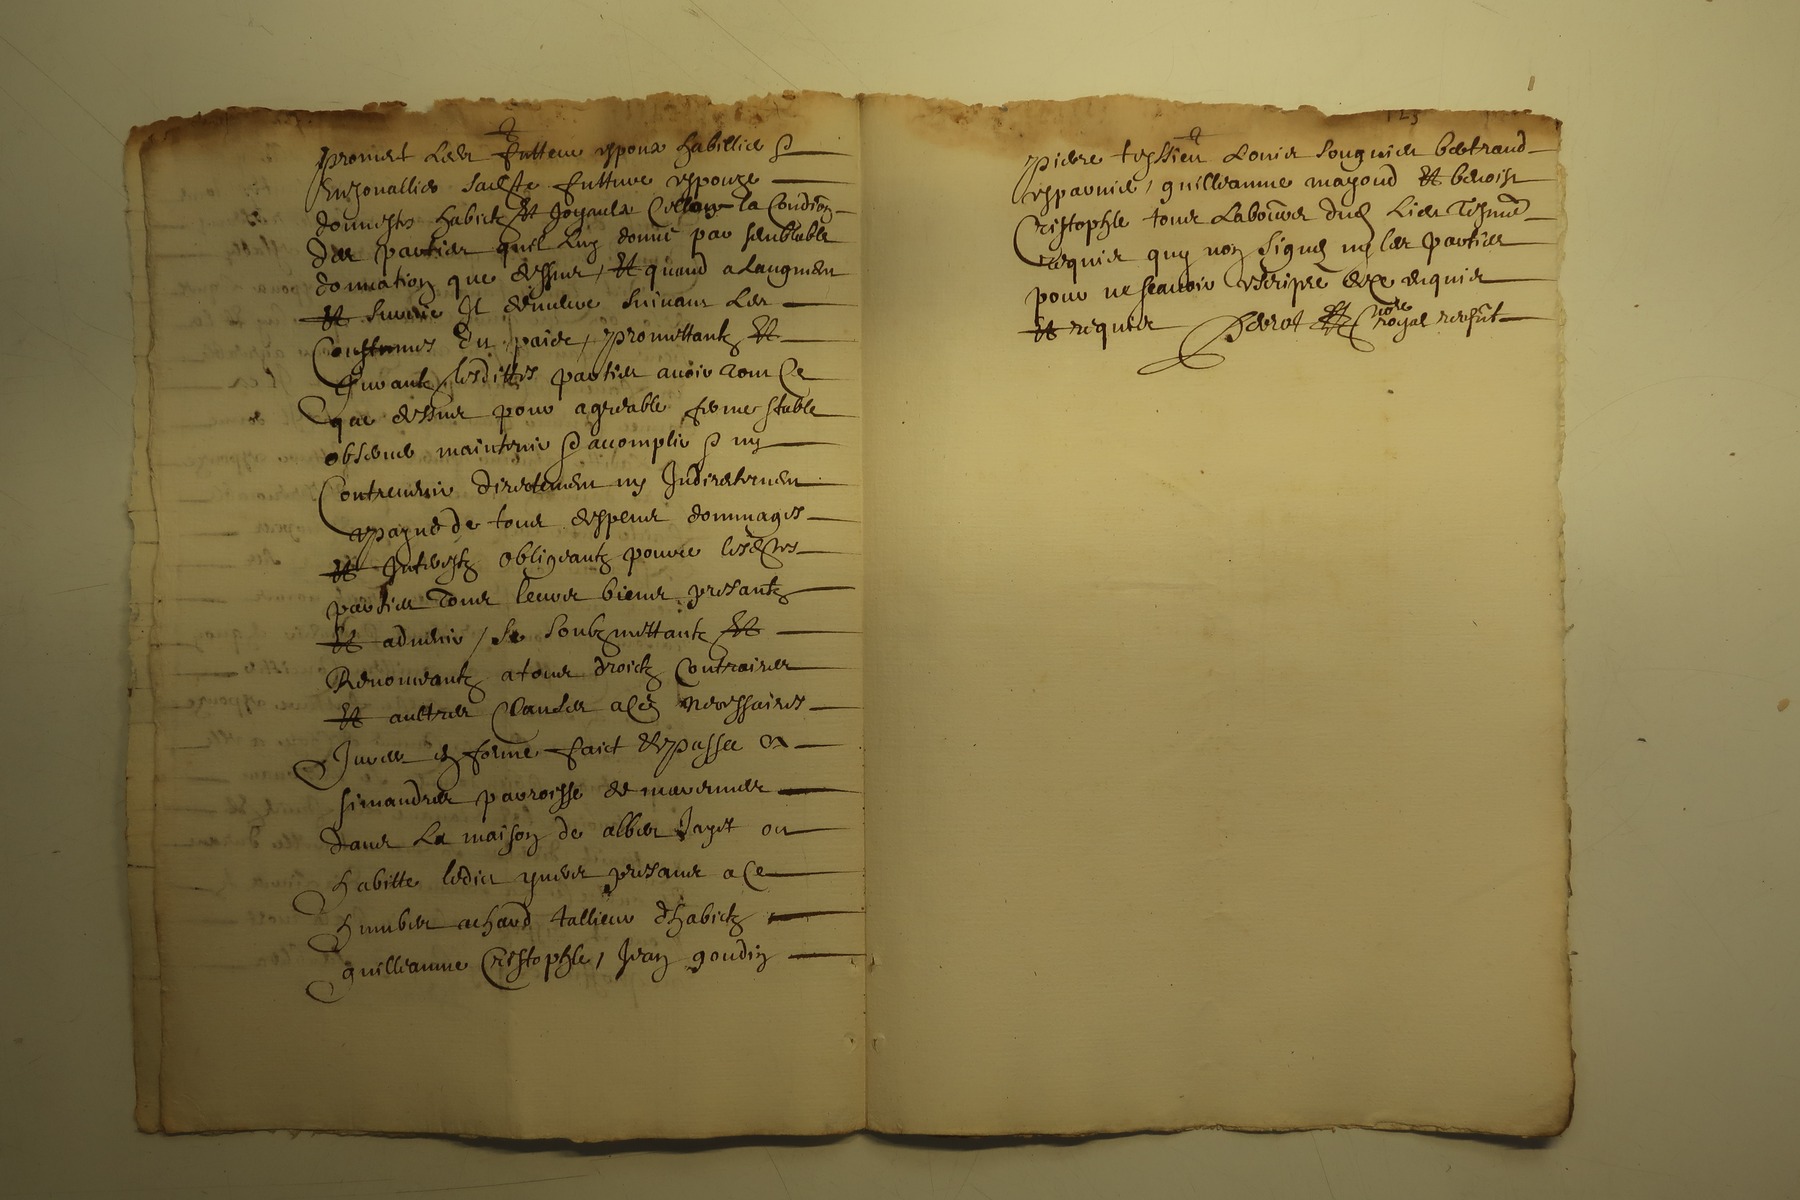 promet led futteur espoux habillier &
Enjouallier sadte futture espouze
donnestz habictz Et Joyaulx Cellon la Condi͠on
des parties quil luy donne par semblable
donnation que dessus, Et quand a laugment
Et survie Il demeure suivant les
Constumes du paier, promettantz Et
Jurantz lesdittes parties avoir tout Ce
que dessus pour agreable ferme stable
observer maintenir & accomplir & ny
Contrevenir directement ny Indirectement
a payne de tous despens dommages
Et Interestz obligeantz pource lesdtes
parties tous leurs biens presantz
Et advenir / Se soubzmettantz Et
Renonceantz a tous droictz Contraires
Et aultres Clauses a Ce necessaires
Jurer en forme faict Et passe a
simandres parroisse de marennes
dans La maison de Jayet ou
habitte ledict presans a Ce
humber achard tallieur dhabictz
guilleaume Cristophle, Jean goudin
123
pierre teyssieu Louis souguier bertrand
esparnier, guilleaume mayoud Et benoist
Cristophle tous Laboureur dud Lieu Tesmo͠
requis quy nont signe ny les parties
pour ne scavoir escripre de Ce enquis
Et requis not͠re royal recep͠nt